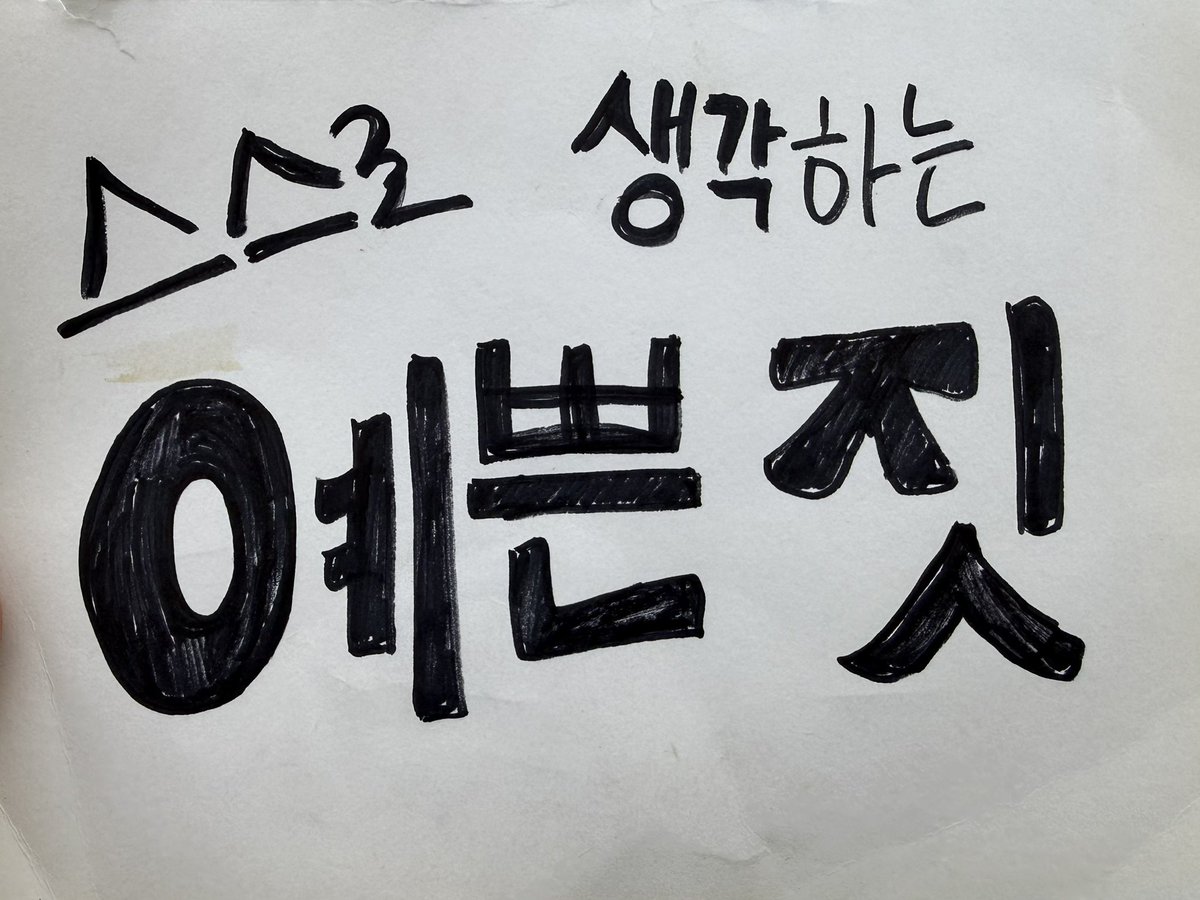 스스로 생각하는
예쁜 짓